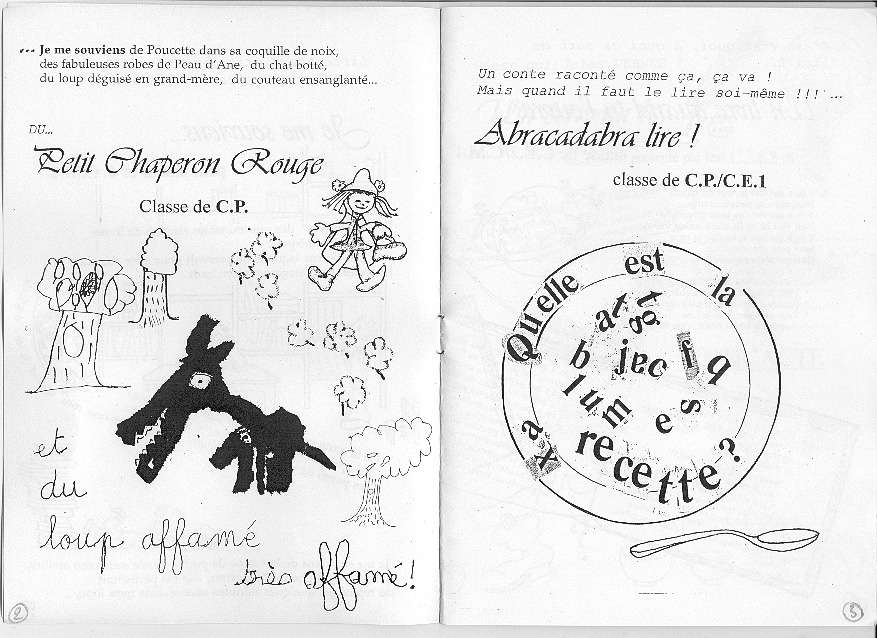 ... Je me souviens de Poucette dans sa coquille de noix,
des fabuleuses robes de Peau d'Ane, du chat botté,
du loup déguisé en grand-mère, du couteau ensanglanté...
DU...
Petit Chaperon Rouge
Classe de C.P.
et
du
loup affamé
très affamé!
2
Un conte raconté comme ça, ça va !
Mais quand il faut le lire soi-même !!!'...
Abracadabra lire !
classe de C.P./C.E.1
Quelle est la
recette?
3